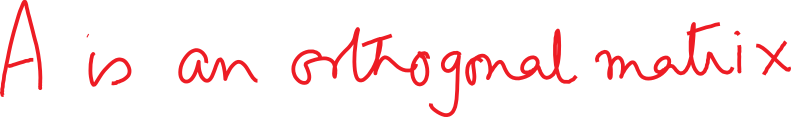 A is an orthogonal matrix